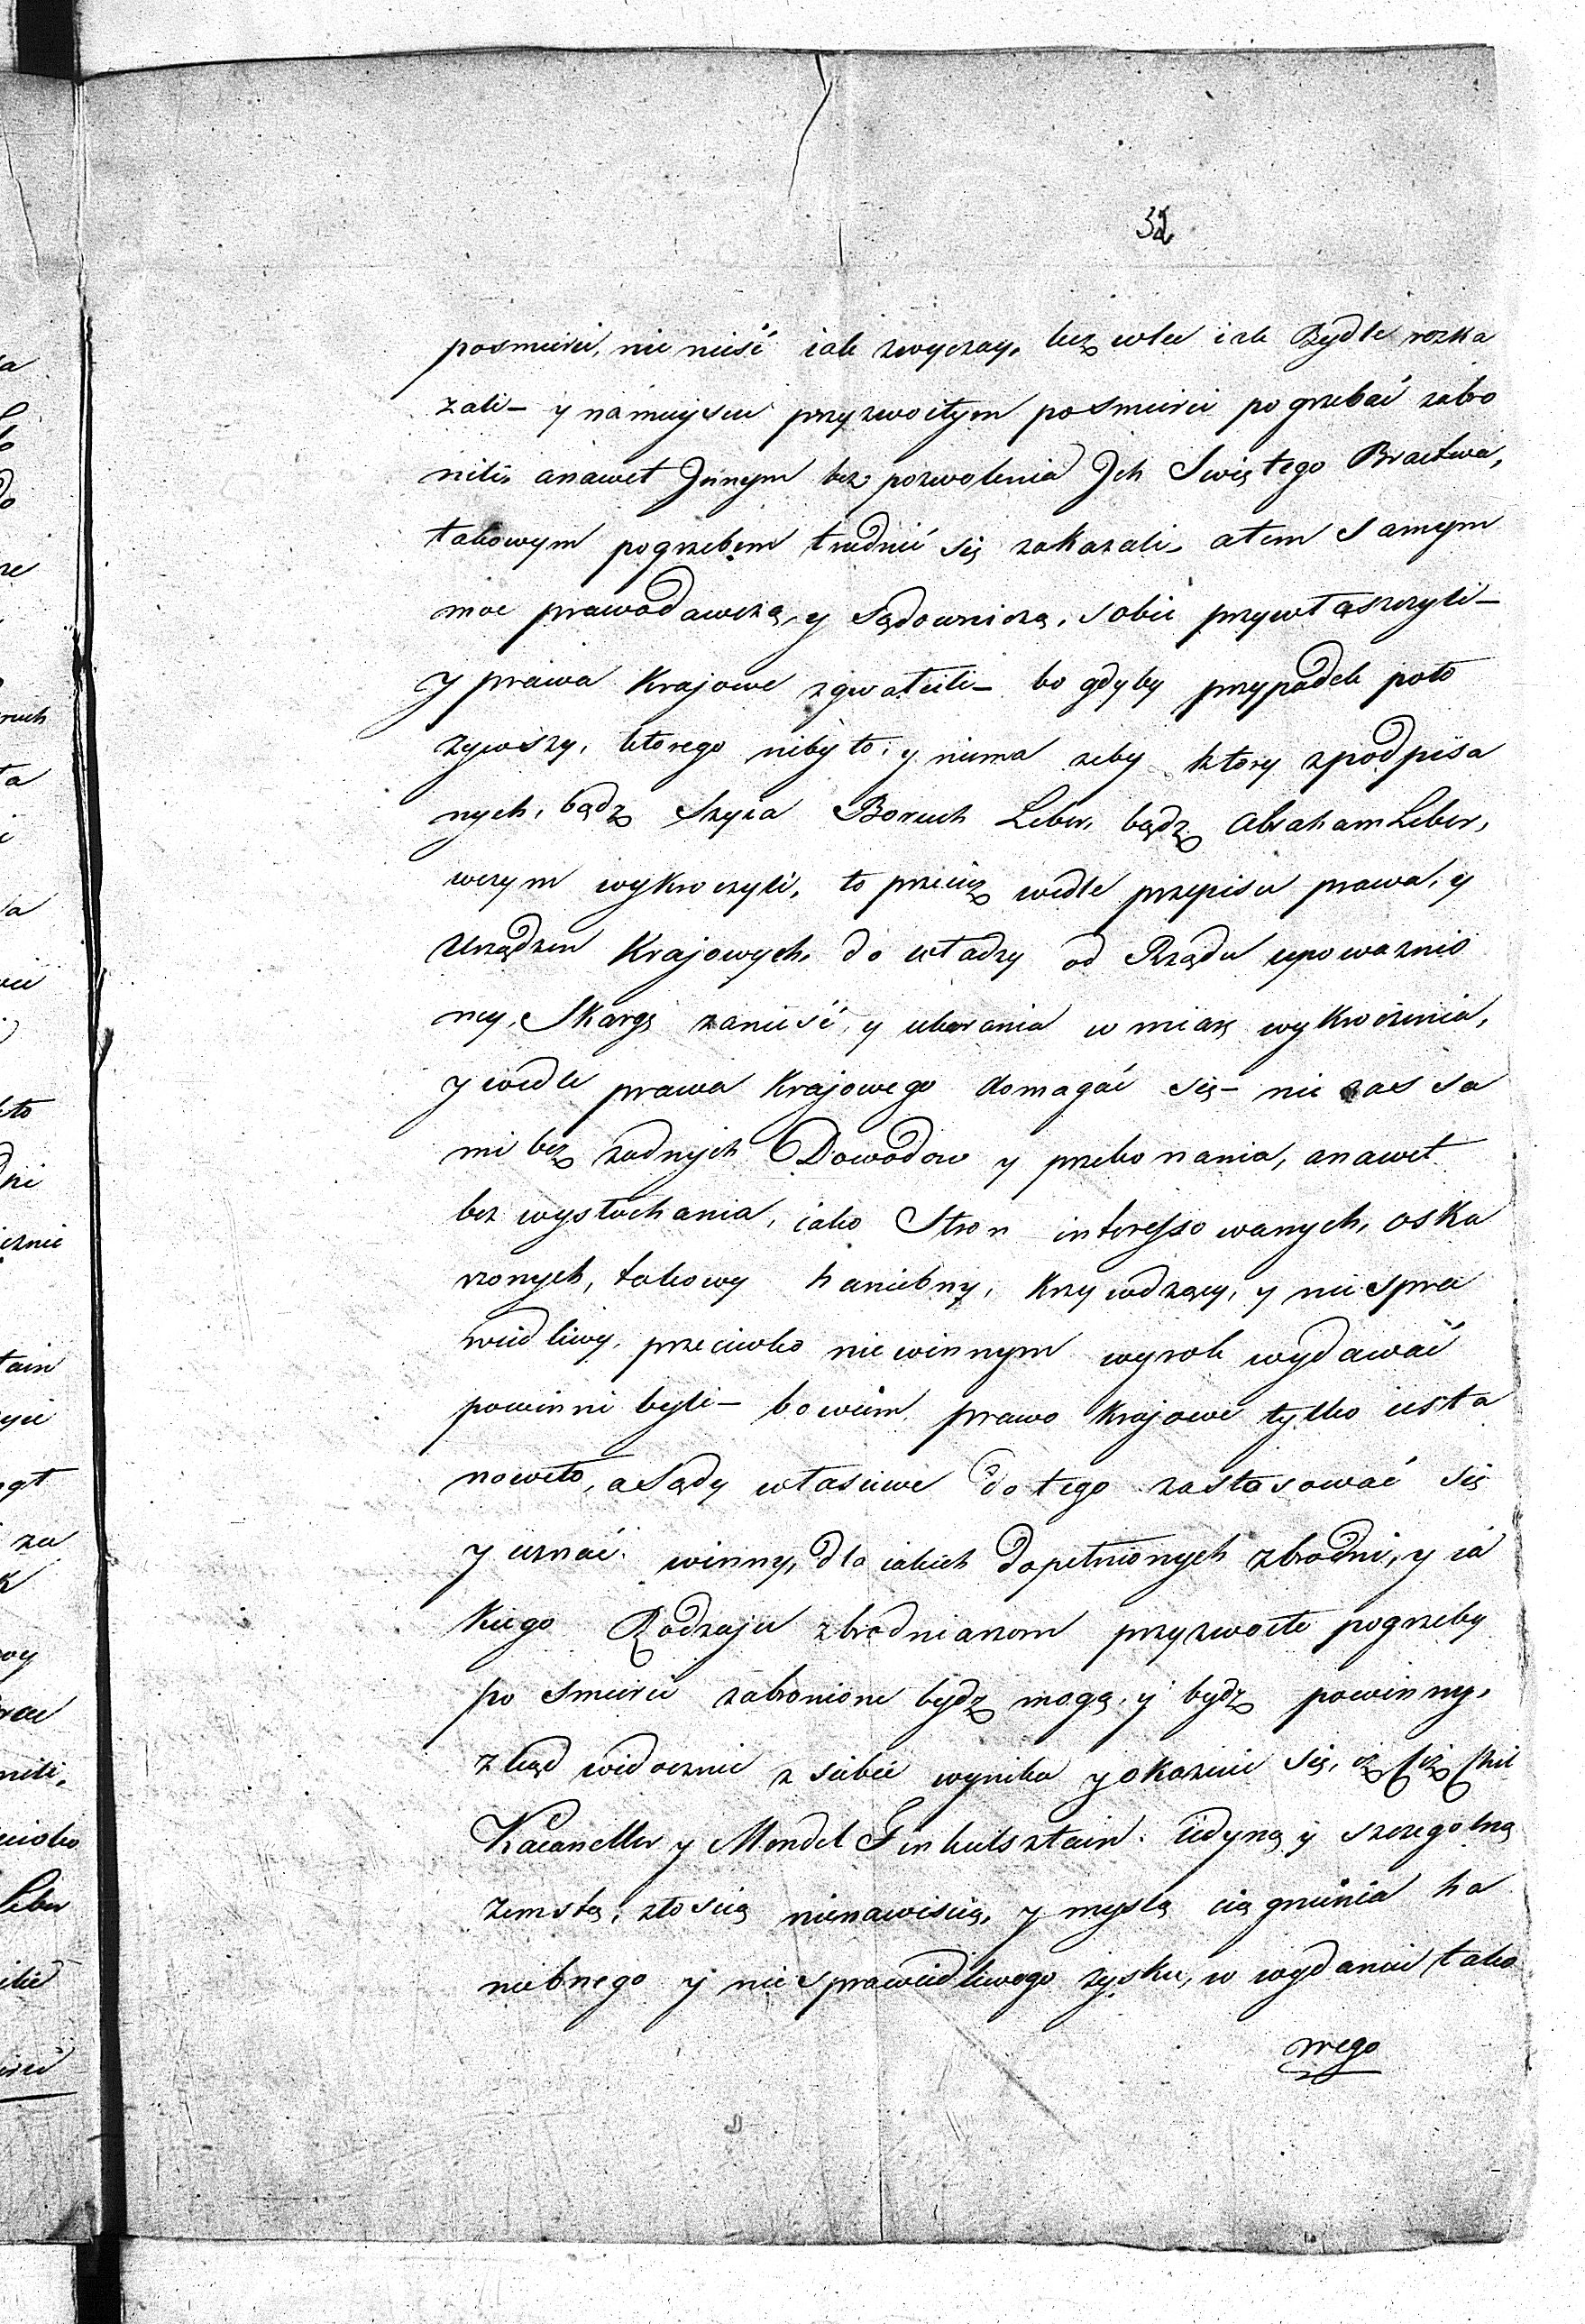 32
posmierci, nie nieść iak zwyczay, lecz wlec iak Bydle rozka
zali – y na mieyscu przyzwoitym po smierci pogrzebać zabro
nili, a nawet Jnnym bez pozwolenia Jch Swiętego Bractwa,
takowym pogrzebem trudnić się zakazali, a tem samym
moc prawodawczą, y Sądowniczą, sobie przywłaszczyli –
y prawa Krajowe zgwałcili – bo gdyby przypadek poło
żywszy, ktorego niby to, y niema żeby ktory z podpisa
nych, bądz Szyia Boruch Leber, bądz Abraham Leber,
w czym wykroczyli, to przeciez wedle przepisu prawa, y
Urządzen Krajowych, do władzy od Rządu upoważnio
ney, Skargę zanieść, y ukarania w miarę wykroczenia,
y wedle prawa Krajowego domagać się – nie zas sa
mi bez żadnych Dowodow y przekonania, a nawet
bez wysłuchania, iako Stron interessowanych, oska
rzonych, takowy haniebny, krzywdzący, y niespra
wiedliwy, przeciwko niewinnym wyrok wydawać
powinni byli – bowiem prawo Krajowe tylko usta
nowiło, a Sądy własciwe do tego zastosować się
y uznać winny, dla iakich dopełnionych zbrodni, y ia
kiego Rodzaju zbrodniarzom przyzwoite pogrzeby
po smierci zabronione bydz mogą, y bydz powinny,
zkąd widocznie z siebie wynika y okazuie się, iz
Kacaneller y Mendel Finkielsztain iedyną y szczegolną
zemstą, złoscią nienawiscią, y myslą ciągnienia ha
niebnego y niesprawiedliwego zysku, w wydaniu tako
wego